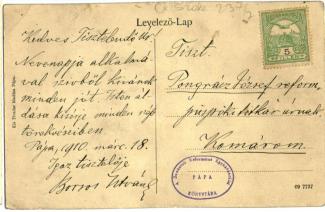 Levelező-Lap
Kedves Tisztelendő Ur!
Nevenapja alkalmá-
val szivből kivánok
minden jót. Isten ál-
dása kisérje minden
törekvéseiben
Pápa, 1910. márc. 18.
Igaz tisztelője
Boros István
Tiszt.
Pongrácz József reform.
püspöki titkár úrnak
Komárom.
5
PÁPA
KÖNYVTÁRA